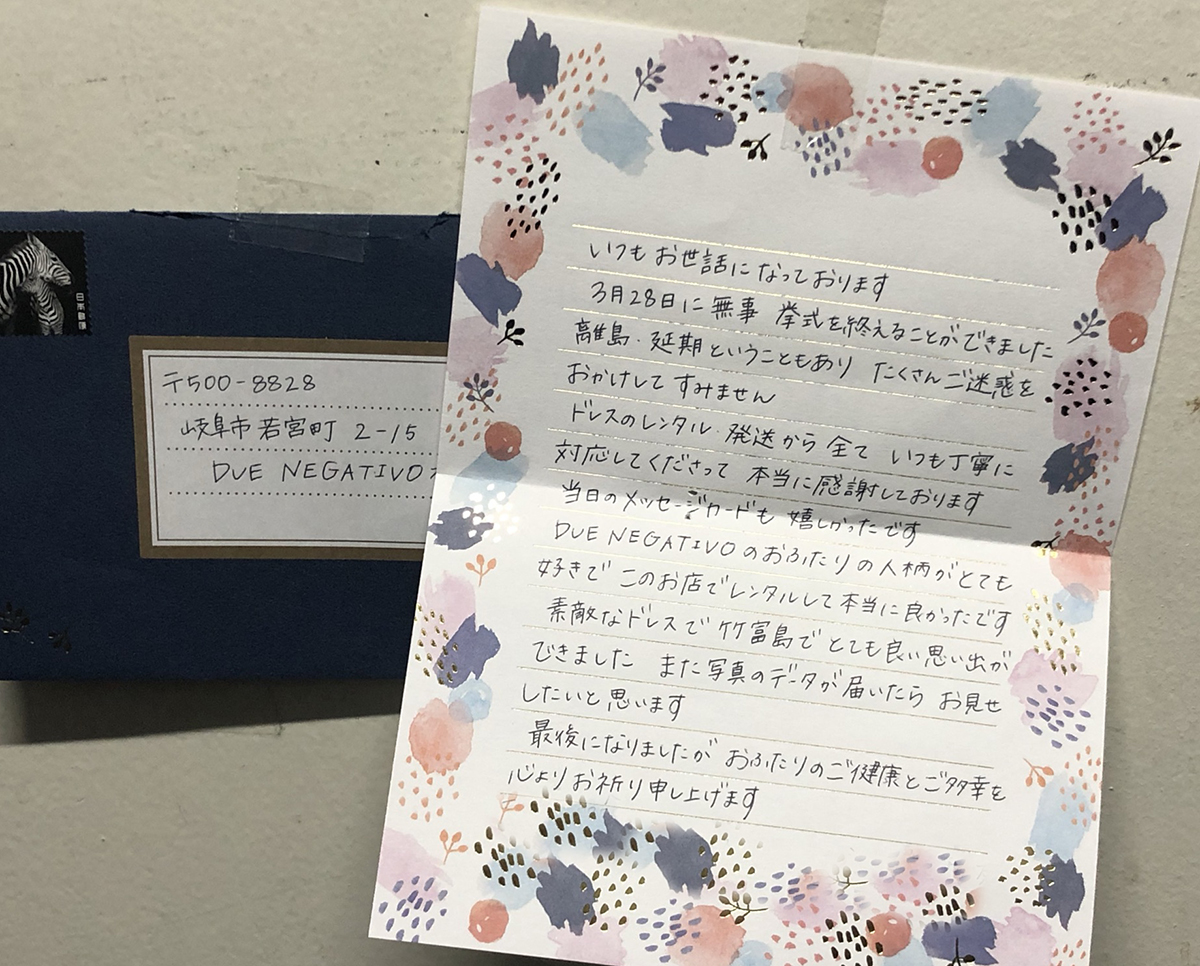 日本郵便
〒500-8828
岐阜市若宮町 2-15
DUE NEGATIVO
いつもお世話になっております
3月28日に無事 挙式を終えることができました
離島・延期ということもあり たくさんご迷惑を
おかけしてすみません
ドレスのレンタル・発送から全て いつも丁寧に
対応してくださって 本当に感謝しております
当日のメッセージカードも嬉しかったです
DUE NEGATIVOのおふたりの人柄がとても
好きで このお店でレンタルして本当に良かったです
素敵なドレスで竹富島でとても良い思い出が
できました また写真のデータが届いたら お見せ
したいと思います
最後になりましたが おふたりのご健康とご多幸を
心よりお祈り申し上げます